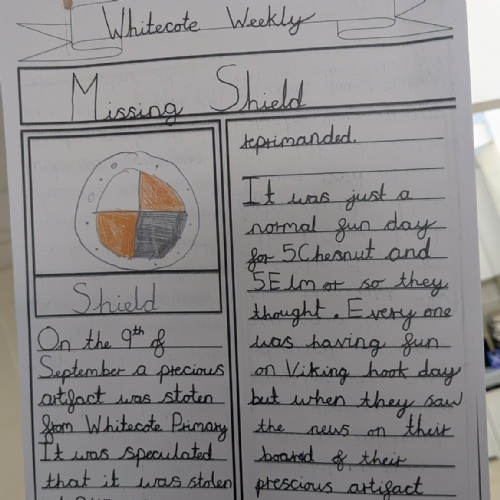 Whitecote Weekly
Missing Shield
Shield
On the 9th of
September a precious
artifact was stolen
from Whitecote Primary
It was speculated
that it was stolen
reprimanded.
It was just a
normal fun day
for 5Chesnut and
5Elm or so they
thought. Every one
was having fun
on Viking hook day
but when they saw
the news on their
board of their
prescious artifact